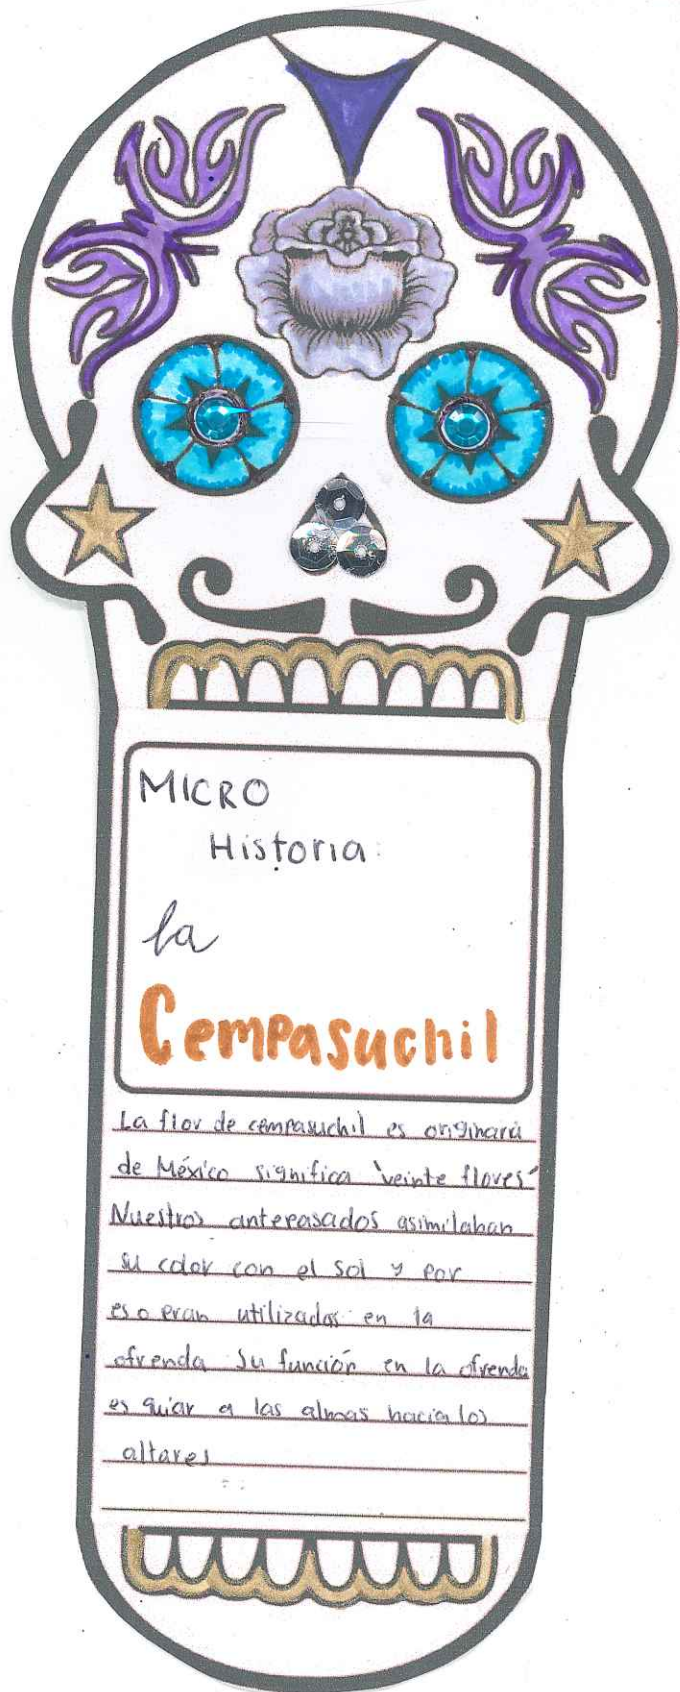 MICRO
Historia:
la
Cempasuchil
La flor de cempasuchil es originaria
de México significa "veinte flores"
Nuestros antepasados asimilaban
su color con el sol y por
eso eran utilizadas en la
ofrenda su función en la ofrenda
es guiar a las almas hacia los
altares